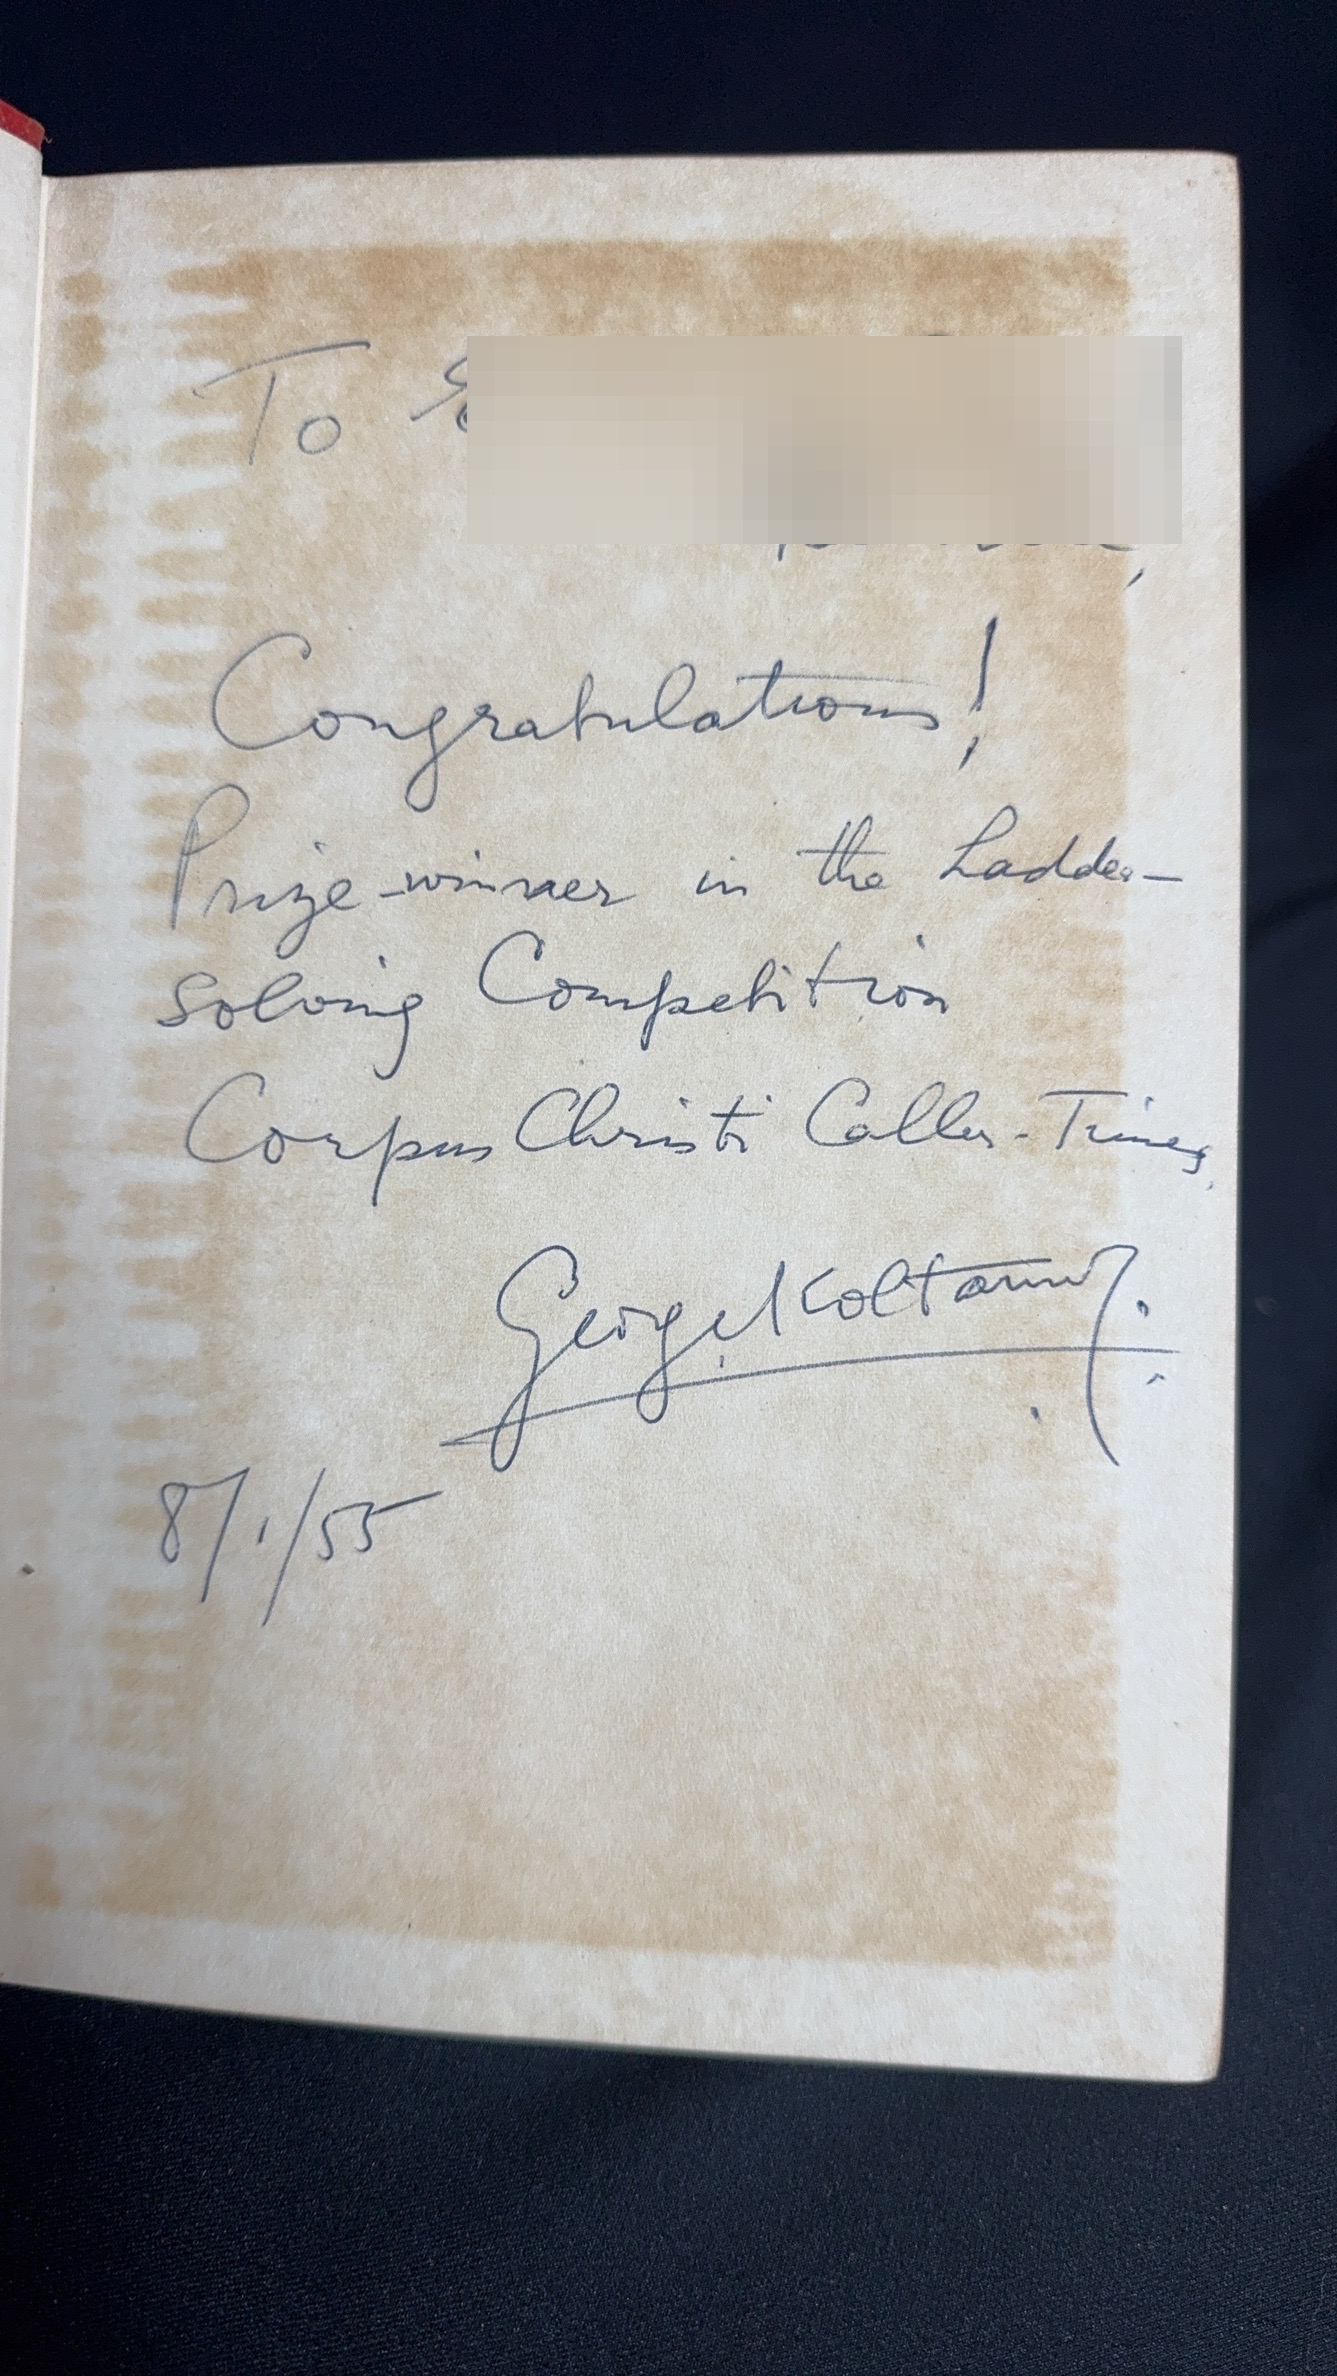 To
Congratulations!
Prize-winner in the Ladder-
solving Competition
Corpus Christi Caller-Times.
George Koltanowski
8/1/55